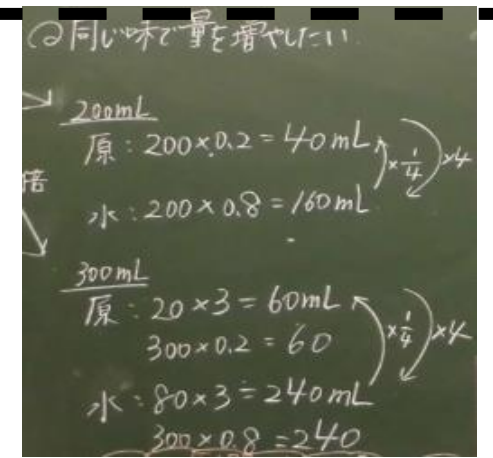 ②同じ味で量を増やしたい
200mL
原：200×0.2=40mL ×1/4 ×4
倍
水：200×0.8=160mL
300mL
原：20×3=60mL
300×0.2=60 ×1/4 ×4
水：80×3=240mL
300×0.8=240